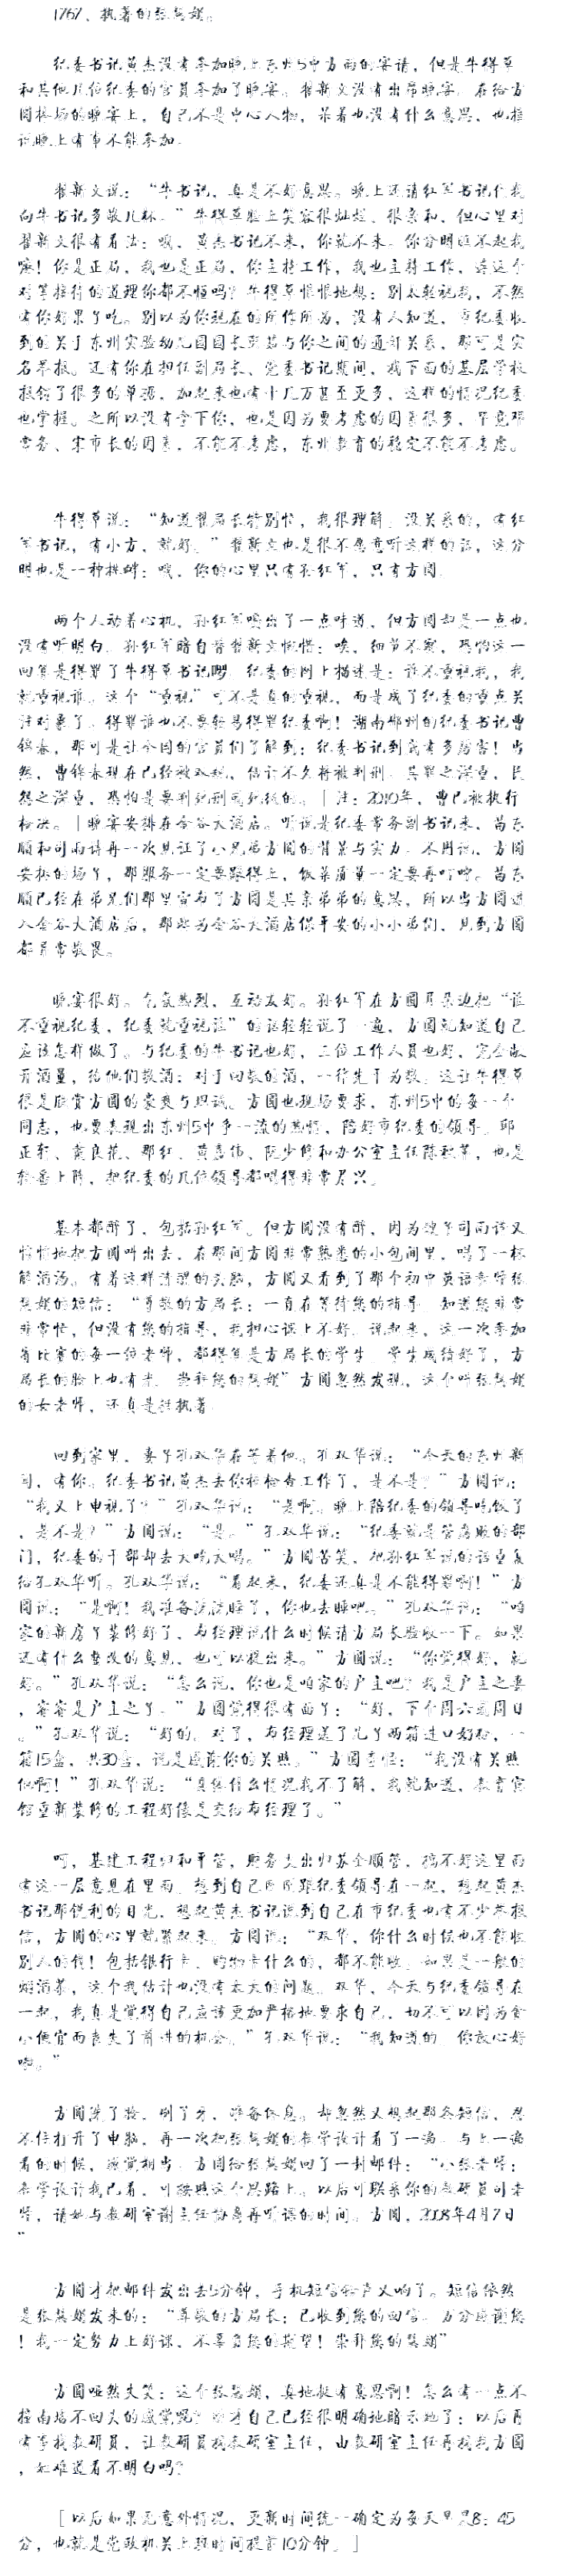 1767、执著的张慧娟。
纪委书记黄杰没有参加晚上东州5中方面的宴请，但是牛得草
和其他几位纪委的官员参加了晚宴。翟新文没有出席晚宴。在给方
圆捧场的晚宴上，自己不是中心人物，呆着也没有什么意思，也推
说晚上有事不能参加。
翟新文说：“牛书记，真是不好意思。晚上还请红军书记代我
向牛书记多敬几杯。”牛得草脸上笑容很灿烂、很亲和，但心里对
翟新文很有看法：哦，黄杰书记不来，你就不来。你分明瞧不起我
嘛！你是正局，我也是正局，你主持工作，我也主持工作，连这个
对等接待的道理你都不懂吗？牛得草恨恨地想：别太轻视我，不然
有你好果子吃。别以为你现在的所作所为，没有人知道，市纪委收
到的关于东州实验幼儿园园长 与你之间的通奸关系，那可是实
名举报。还有你在担任副局长、党委书记期间，找下面的基层学校
报销了很多的单据，加起来也有十几万甚至更多，这样的情况纪委
也掌握。之所以没有拿下你，也是因为要考虑的因素很多，毕竟邓
常务、宋市长的因素，不能不考虑，东州教育的稳定不能不考虑。
牛得草说：“知道翟局长特别忙，我很理解。没关系的，有红
军书记，有小方，就好。”翟新文也是很不愿意听这样的话，这分
明也是一种挑衅：哦，你的心里只有孙红军，只有方圆。
两个人动着心机，孙红军嗅出了一点味道，但方圆却是一点也
没有听明白。孙红军暗自替翟新文惋惜：唉，细节不察，恐怕这一
回算是得罪了牛得草书记啰。纪委的网上描述是：谁不重视我，我
就重视谁。这个“重视”可不是真的重视，而是成了纪委的重点关
注对象了。得罪谁也不要轻易得罪纪委啊！湖南郴州的纪委书记曾
锦春，那可是让全国的官员们了解到：纪委书记到底有多厉害！当
然，曾锦春现在已经被双规，估计不久将被判刑。其罪之深重，民
怨之深重，恐怕是要判死刑可死缓的。［注：2010年，曾已被执行
枪决。］晚宴安排在金谷大酒店。听说是纪委常务副书记来，苗东
顺和司雨诗再一次见证了小兄弟方圆的背景与实力。不用说，方圆
安排的场子，那服务一定要跟得上，饭菜质量一定要再叮咛。苗东
顺已经在弟兄们那里宣布了方圆是其亲弟弟的意思，所以当方圆进
入金谷大酒店后，那些为金谷大酒店保平安的小小弟们，见到方圆
都异常敬畏。
晚宴很好。气氛热烈，互动友好。孙红军在方圆耳朵边把“谁
不重视纪委，纪委就重视谁”的话轻轻说了一遍，方圆就知道自己
应该怎样做了。与纪委的牛书记也好，三位工作人员也好，完全敞
开酒量，给他们敬酒；对于回敬的酒，一律先干为敬。这让牛得草
很是欣赏方圆的豪爽与坦诚。方圆也现场要求，东州5中的每一个
同志，也要表现出东州5中争一流的热情，陪好市纪委的领导。邱
正轩、龚良花、那红、黄嘉伟、阮少修和办公室主任陈秋苹，也是
轮番上阵，把纪委的几位领导都喝得非常尽兴。
基本都醉了，包括孙红军。但方圆没有醉，因为嫂子司雨诗又
悄悄地把方圆叫出去，在那间方圆非常熟悉的小包间里，喝了一杯
解酒汤。有着这样清醒的头脑，方圆又看到了那个初中英语老师张
慧娟的短信：“尊敬的方局长：一直在等待您的指导。知道您非常
非常忙，但没有您的指导，我担心课上不好。说起来，这一次参加
省比赛的每一位老师，都得算是方局长的学生。学生成绩好了，方
局长的脸上也有光。崇拜您的慧娟”方圆忽然发现，这个叫张慧娟
的女老师，还真是挺执著。
回到家里，妻子孔双华在等着他。孔双华说：“今天的东州新
闻，有你。纪委书记黄杰去你校检查工作了，是不是？”方圆说：
“我又上电视了？”孔双华说：“是啊。晚上陪纪委的领导吃饭了
，是不是？”方圆说：“是。”孔双华说：“纪委就是管腐败的部
门，纪委的干部却去大吃大喝。”方圆苦笑，把孙红军说的话重复
给孔双华听。孔双华说：“看起来，纪委还真是不能得罪啊！”方
圆说：“是啊！我准备洗洗睡了，你也去睡吧。”孔双华说：“咱
家的新房子装修好了，布经理说什么时候请方局长验收一下。如果
还有什么整改的意见，也可以提出来。”方圆说：“你觉得好，就
好。”孔双华说：“怎么说，你也是咱家的户主吧？我是户主之妻
，密密是户主之子。”方圆觉得很有面子：“好，下个周六或周日
。”孔双华说：“好的。对了，布经理送了儿子两箱进口奶粉，一
箱15盒，共30盒，说是感谢你的关照。”方圆奇怪：“我没有关照
他啊！”孔双华说：“具体什么情况我不了解，我就知道，教育宾
馆重新装修的工程好像是交给布经理了。”
呵，基建工程归和平管，财务支出归苏金顺管，搞不好这里面
有这一层意思在里面。想到自己刚刚跟纪委领导在一起，想起黄杰
书记那锐利的目光，想起黄杰书记说到自己在市纪委也有不少举报
信，方圆的心里就紧起来。方圆说：“双华，你什么时候也不能收
别人的钱！包括银行卡、购物卡什么的，都不能收。如果是一般的
烟酒茶，这个我估计也没有太大的问题。双华，今天与纪委领导在
一起，我真是觉得自己应该更加严格地要求自己，切不可以因为贪
小便宜而丧失了前进的机会。”孔双华说：“我知道的。你放心好
啦。”
方圆洗了脸，刷了牙，准备休息。却忽然又想起那条短信，忍
不住打开了电脑，再一次把张慧娟的教学设计看了一遍。与上一遍
看的时候，感觉相当。方圆给张慧娟回了一封邮件：“小张老师：
教学设计我已看，可按照这个思路上。以后可联系你的教研员司老
师，请她与教研室谢主任协商再听课的时间。方圆，2008年4月7日
”
方圆才把邮件发出去5分钟，手机短信铃声又响了。短信依然
是张慧娟发来的：“尊敬的方局长：已收到您的回信。万分感谢您
！我一定努力上好课，不辜负您的期望！崇拜您的慧娟”
方圆哑然失笑：这个张慧娟，真地挺有意思啊！怎么有一点不
撞南墙不回头的感觉呢？刚才自己已经很明确地暗示她了：以后再
有事找教研员，让教研员找教研室主任，由教研室主任再找我方圆
，她难道看不明白吗？
［以后如果无意外情况，更新时间统一确定为每天早晨8：45
分，也就是党政机关上班时间提前10分钟。］